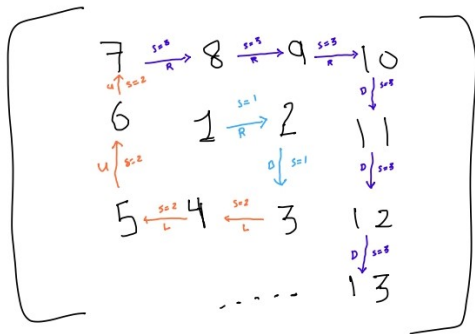 7 S=3 R 8 S=3 R 9 S=3 R 10
U S=2 D S=3
6 1 S=1 R 2 11
U S=2 D S=1 D S=3
5 S=2 L 4 S=2 L 3 12
D S=3
..... 13